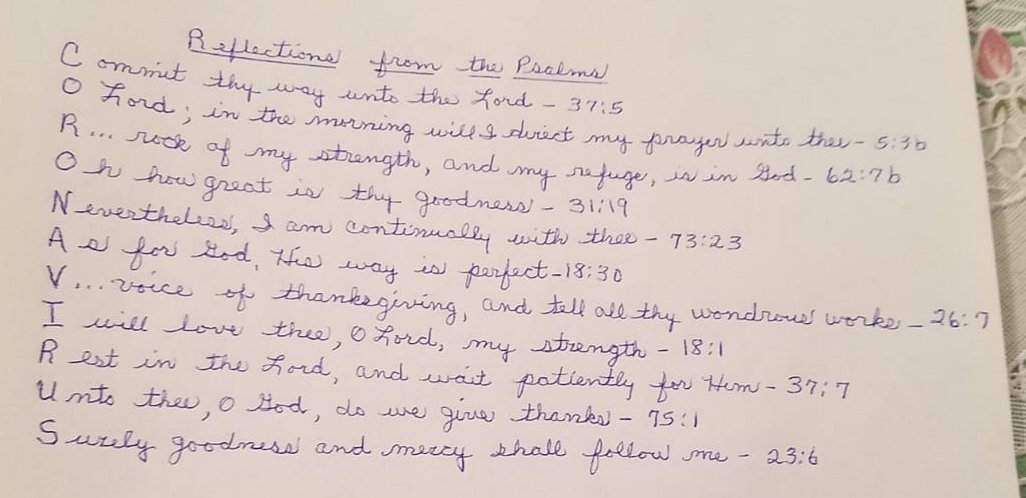 Reflections from the Psalms
Commit thy way unto the Lord - 37:5
O Lord; in the morning will I direct my prayer unto thee - 5:3b
R... rock of my strength, and my refuge, is in God - 62:7b
Oh how great is thy goodness - 31:19
Nevertheless, I am continually with thee - 73:23
As for God, His way is perfect - 18:30
V... voice of thanksgiving, and tell all thy wondrous works - 26:7
I will love thee, O Lord, my strength - 18:1
Rest in the Lord, and wait patiently for Him - 37:7
Unto thee, O God, do we give thanks - 75:1
Surely goodness and mercy shall follow me - 23:6